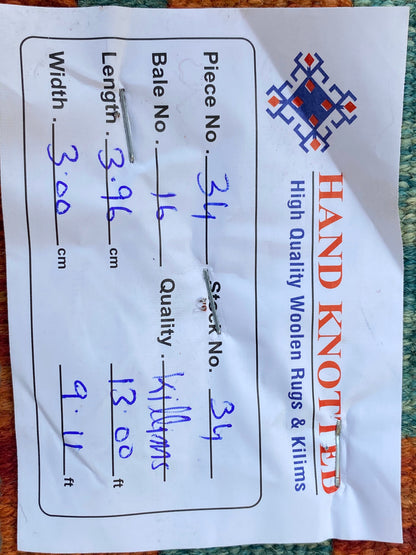 HAND KNOTTED
High Quality Woolen Rugs & Kilims
Piece No. 34 Stock No. 34
Bale No. 16 Quality. Killyms
Length. 3.96 cm 13.00 ft
Width. 3.00 cm 9.11 ft